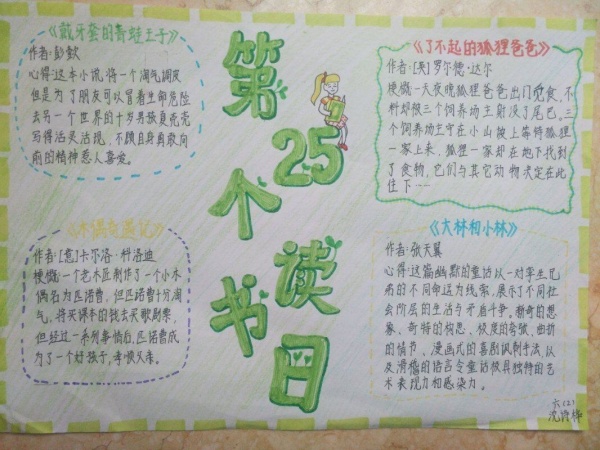 《戴牙套的青蛙王子》
作者:彭懿
心得:这本小说,将一个淘气调皮
但是为了朋友可以冒着生命危险
去另一个世界的十岁男孩夏壳壳
写得活灵活现,不顾自身勇敢向
前的精神惹人喜爱。
第25个读书日
《了不起的狐狸爸爸》
作者:[英]罗尔德·达尔
梗概:一天夜晚狐狸爸爸出门觅食,不
料却被三个饲养场主射没了尾巴,三
个饲养场主守在小山坡上等待狐狸
一家上来,狐狸一家却在地下找到
了食物,它们与其它动物决定在此
住下……
《木偶奇遇记》
作者:[意]卡尔洛·科洛迪
梗概:一个老木匠制作了一个小木
偶名为匹诺曹,但匹诺曹十分淘
气,将买课本的钱去买歌剧票,
但经过一系列事情后,匹诺曹成
为了一个好孩子,孝顺父亲。
《大林和小林》
作者:张天翼
心得:这篇幽默的童话以一对孪生兄
弟的不同命运为线索,展示了不同社
会阶层的生活与矛盾斗争,新奇的想
象、奇特的构思、极度的夸张、曲折
的情节、漫画式的喜剧讽刺手法,以
及滑稽的语言令童话极具独特的艺
术表现力和感染力。
六(2)